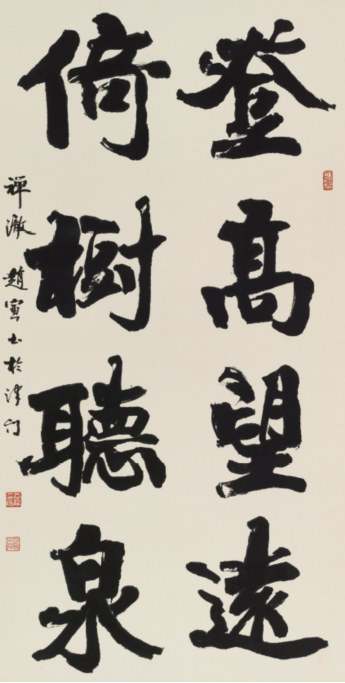 登高望遠
倚樹聽泉
禪澈趙寅士於津門